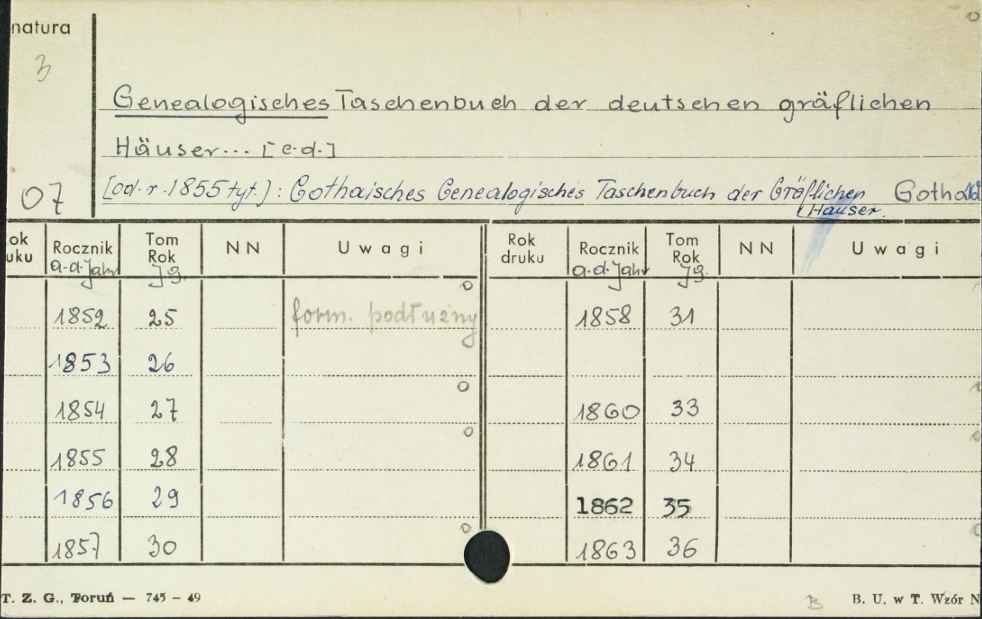 natura
3
Genealogisches Taschenbuch der deutschen gräflichen
Häuser... [c.d.]
07
[od. r. 1855 tyt.]: Gothaisches Genealogisches Taschenbuch der Gräflichen Gotha
Häuser.
ok uku Rocznik a.d. Jahr Tom Rok Jg. NN Uwagi Rok druku Rocznik a.d. Jahr Tom Rok Jg. NN Uwagi
1852 25 form. podłużny 1858 31
1853 26
1854 27 1860 33
1855 28 1861 34
1856 29 1862 35
1857 30 1863 36
T. Z. G., Toruń — 745 - 49 B B. U. w T. Wzór N